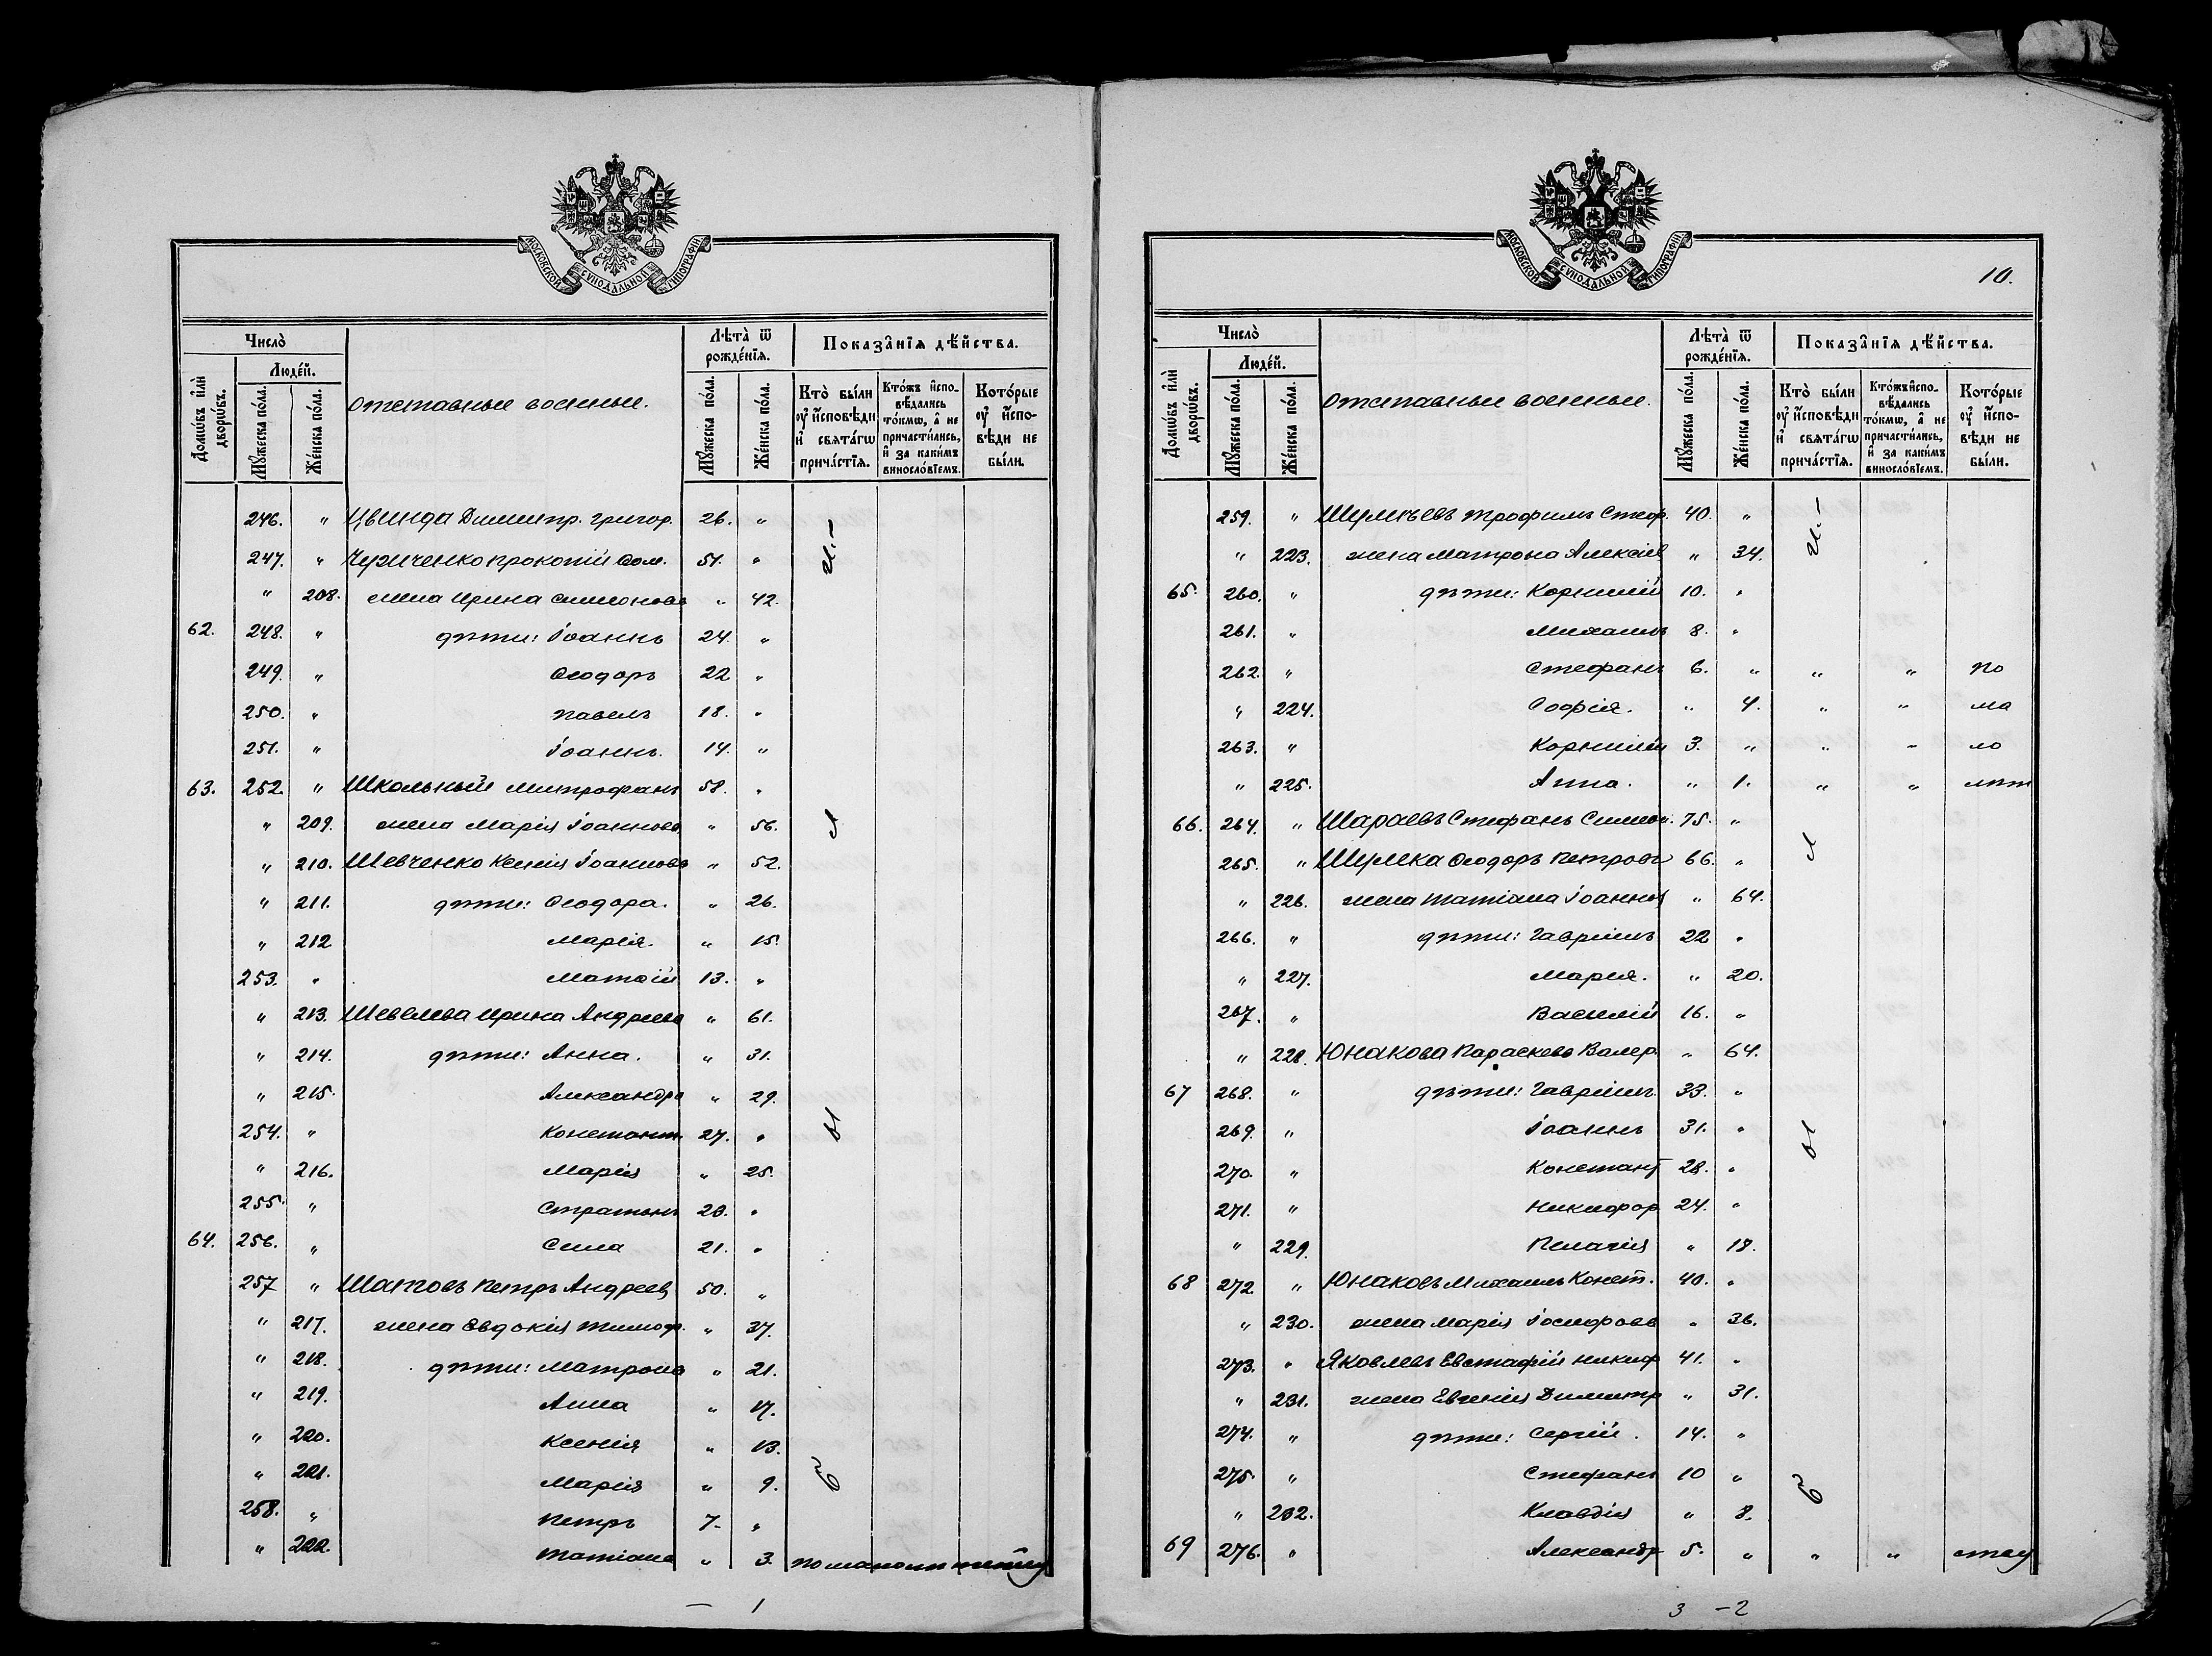 МОСКОВСКОЙ СѴНОДАЛЬНОЙ ТИПОГРАФІИ
Число̀
Людей.
Домѡвъ и҆лѝ дворѡвъ.
Мꙋ́жеска по́ла.
Же́нска по́ла.
Отставные военные.
Лѣта̀ ѿ рожде́нїѧ.
Мꙋ́жеска по́ла.
Же́нска по́ла.
Показа̑нїѧ дѣ́йства.
Кто̀ бы́ли ᲂу҆ и҆сповѣди и҆ свѧта́гѡ прича́стїѧ.
Кто́жъ и҆спо-вѣдались то́кмѡ, а҆ не причасти́лись, и҆ за каки́мъ винослѡ́вїемъ.
Кото́рые ᲂу҆ и҆спо-вѣди не бы́ли.
246. " Цвинда Димитр. Григор. 26. "
247. " Чуриченко Прокопій Сом. 51. "
" 208. жена Ирина Симонова " 42.
62. 248. " дѣти: Іоаннъ 24. "
249. " Ѳеодоръ 22 "
250. " Павелъ 18. "
251. " Іоаннъ. 14. "
63. 252. " Школьный Митрофанъ 58. "
" 209. жена Марія Іоаннова " 56.
" 210. Шевченко Ксенія Іоаннова " 52.
" 211. дѣти: Ѳеодора. " 26.
" 212 Марія. " 15.
253. " Матѳій 13. "
" 213. Шевелева Ирина Андреева " 61.
" 214. дѣти: Анна. " 31.
" 215. Александра " 29.
254. " Констант. 27. "
" 216. Марія " 25.
255. " Стратонъ 23. "
64. 256. " Сила 21. "
257 " Шатовъ Петръ Андреев 50. "
" 217. жена Евдокія Тимоф. " 37.
" 218. дѣти: Матрона " 21.
" 219. Анна " 17.
" 220. Ксенія " 13.
" 221. Марія " 9.
258. " Петръ 7. "
" 222. Татіана " 3. по малолѣтству
б ы л и. –
– 1
МОСКОВСКОЙ СѴНОДАЛЬНОЙ ТИПОГРАФІИ
10.
Число̀
Людей.
Домѡвъ и҆лѝ дворѡвъ.
Мꙋ́жеска по́ла.
Же́нска по́ла.
Отставные военные.
Лѣта̀ ѿ рожде́нїѧ.
Мꙋ́жеска по́ла.
Же́нска по́ла.
Показа̑нїѧ дѣ́йства.
Кто̀ бы́ли ᲂу҆ и҆сповѣди и҆ свѧта́гѡ прича́стїѧ.
Кто́жъ и҆спо-вѣдались то́кмѡ, а҆ не причасти́лись, и҆ за каки́мъ винослѡ́вїемъ.
Кото́рые ᲂу҆ и҆спо-вѣди не бы́ли.
259. " Шумѣевъ Трофимъ Стеф. 40. "
" 223. жена Матрона Алексіев " 34.
65. 260. " дѣти: Корнилій 10. "
261. " Михаилъ 8. "
262. " Стефанъ 6. " " " по
" 224. Софія. " 4. " " ма
263. " Корнилій 3. " " " ло
" 225. Анна. " 1. " " лѣт
66. 264. " Шараевъ Стефанъ Симеон. 75. "
265. " Шумка Ѳеодоръ Петровъ 66. "
" 226. жена Татіана Іоаннов " 64.
266. " дѣти: Гавріилъ 22 "
" 227. Марія. " 20.
267. " Василій 16. "
" 228. Юнакова Параскева Валер. " 64.
67 268. " дѣти: Гавріилъ 33. "
269. " Іоаннъ 31. "
270. " Констант 28. "
271. " Никифор 24. "
" 229. Пелагія " 18.
68 272. " Юнаковъ Михаилъ Конст. 40. "
" 230. жена Марія Іосифова " 36.
273. " Яковлевъ Евстафій Никиф 41. "
" 231. жена Евгенія Димитр " 31.
274. " дѣти: Сергій. 14. "
275. " Стефанъ 10 "
" 232. Клавдія " 8.
69 276. " Александр 5. " " " ству
б ы л и. –
3 – 2